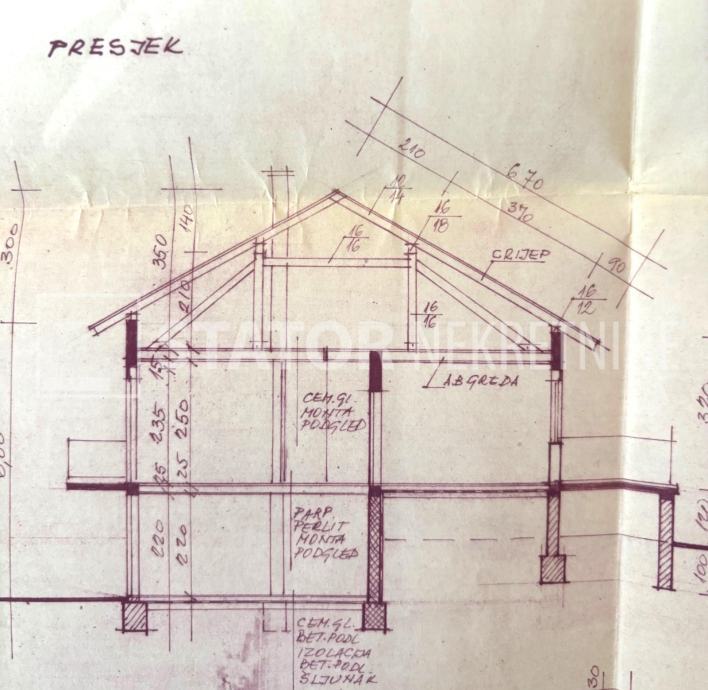 PRESJEK
210
6 70
370
90
10
14
16
18
16
16
CRIJEP
16
12
16
16
300
350
140
210
STATOR NEKRETNINE
AB GREDA
CEM.GL.
MONTA
PODGLED
235
250
25
25
320
PARP.
PERLIT
MONTA
PODGLED
220
220
120
100
CEM.GL.
BET.PODL
IZOLACIJA
BET.PODL.
ŠLJUNAK
30